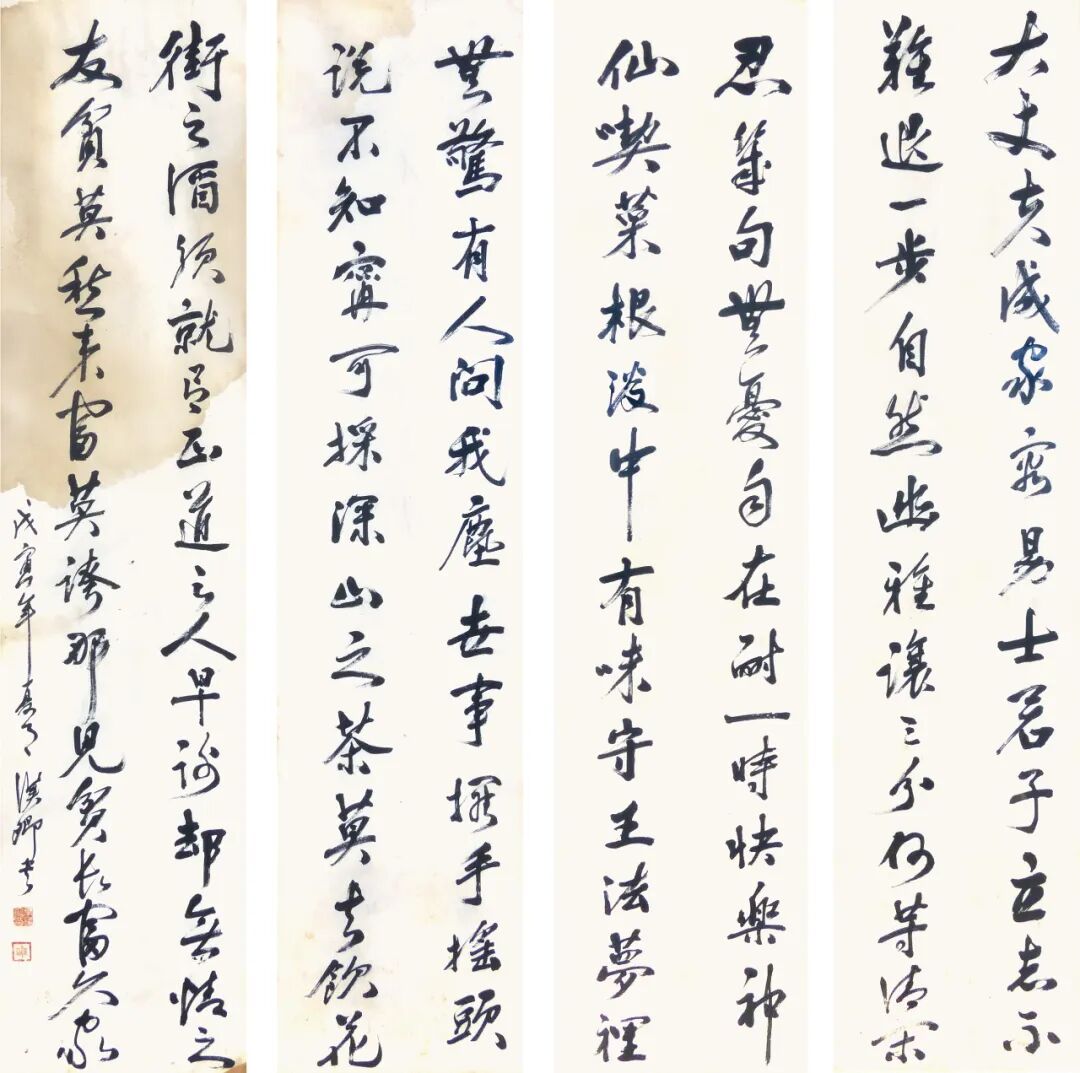 大丈夫成家容易士君子立志不
難退一步自然幽雅讓三分何等清閑
忍幾句無憂自在耐一時快樂神
仙喫菜根淡中有味守王法夢裡
無驚有人問我塵世事擺手搖頭
说不知寧可採深山之茶莫去飲花
街之酒须就有正道之人早谢却無情之
友貧莫愁来富莫誇那見貧长富久家
戊寅年春月漢卿书